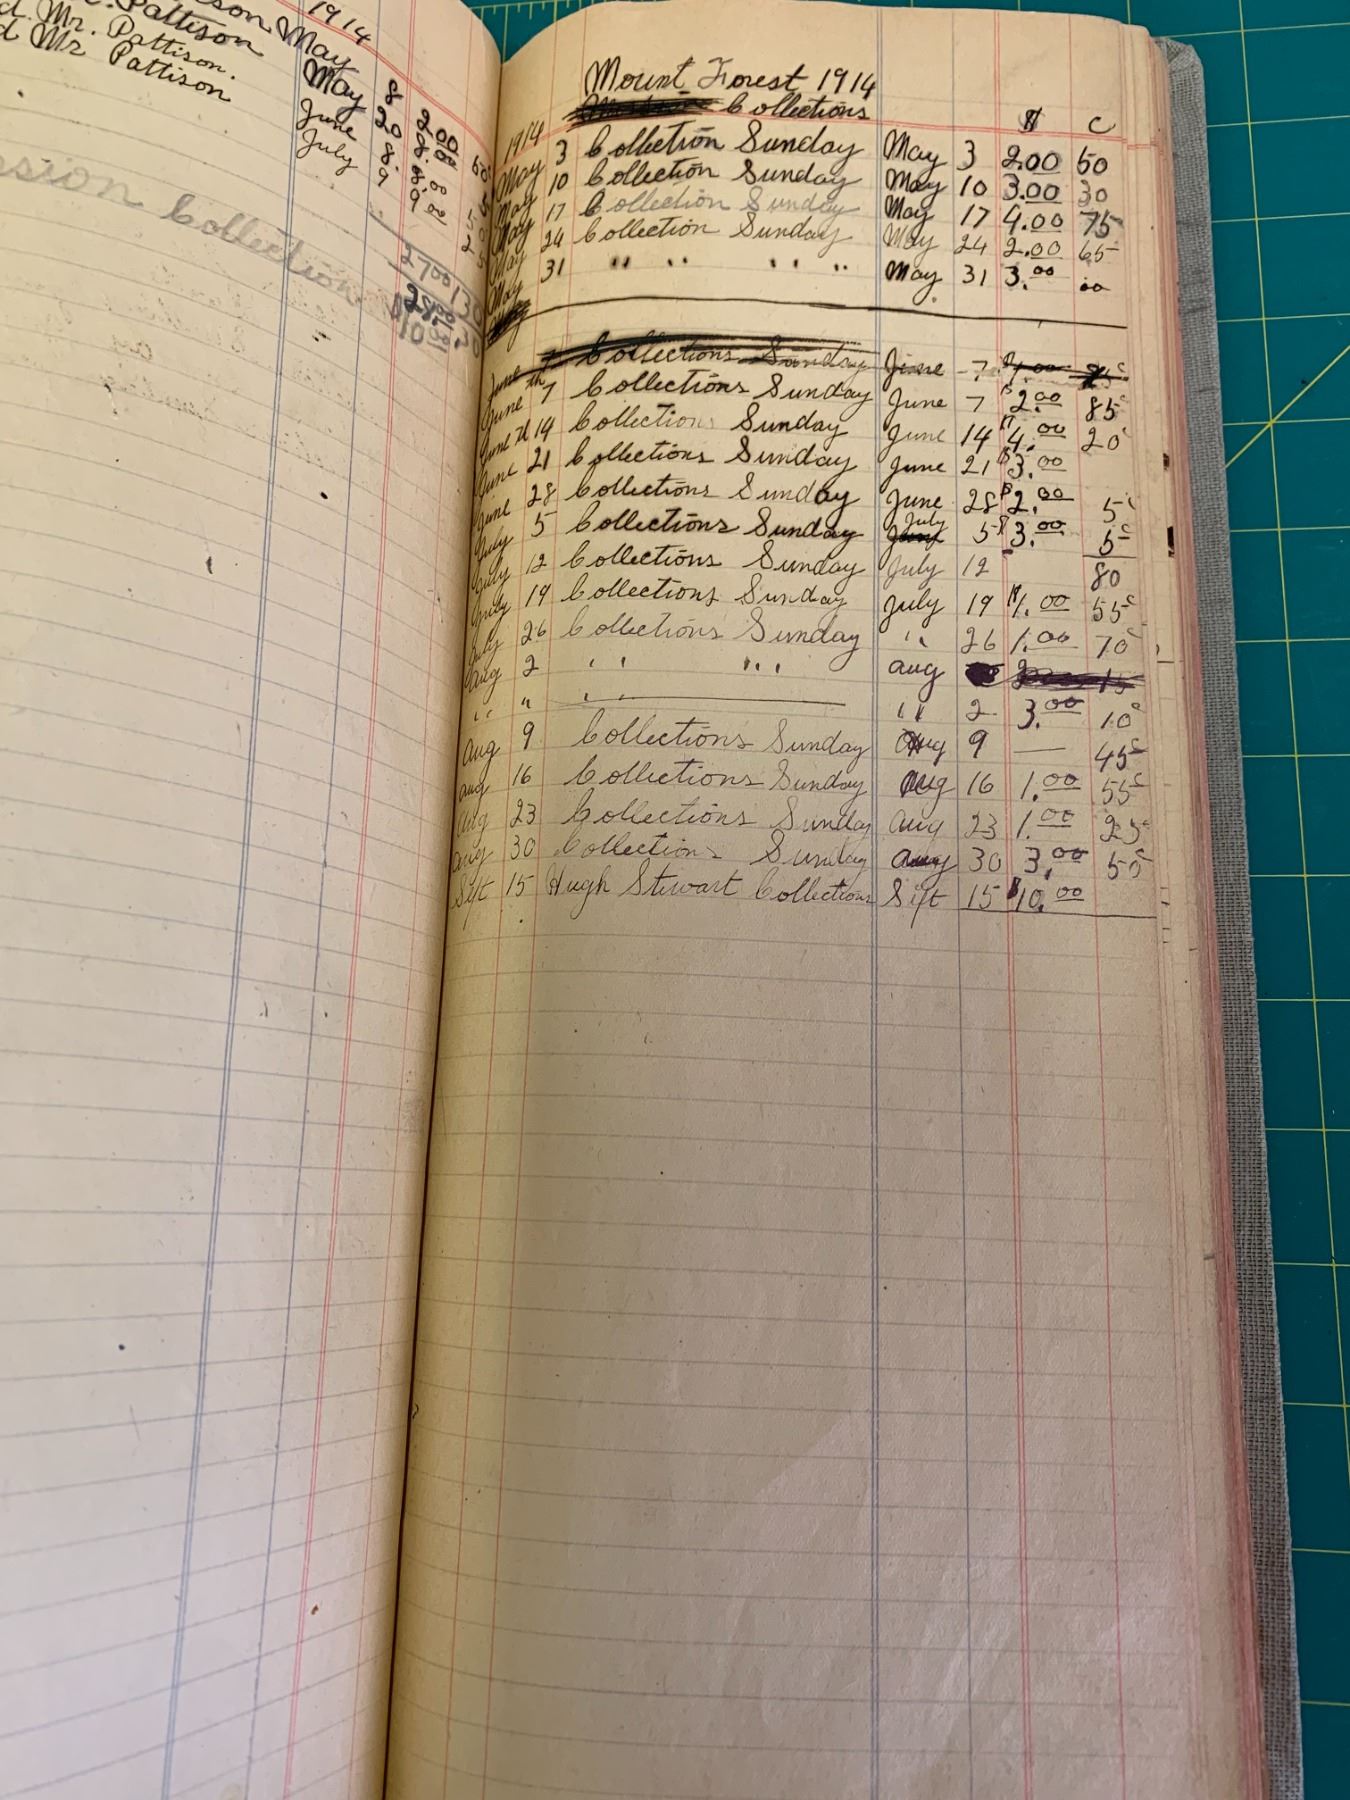 1914
Pattison May 8 2.00 50
d. Mr. Pattison. May 20 8.00
d Mr Pattison June 8. 8.00
July 9 9.00
2700 130
28.00
10.00.30
sion Collection
Mount Forest 1914
Collections
1914 $ C
May 3 Collection Sunday May 3 2.00 50
May 10 Collection Sunday May 10 3.00 30
May 17 Collection Sunday May 17 4.00 75
May 24 Collection Sunday May 24 2.00 65
May 31 " " " " May 31 3.00 .00
June 7 Collections Sunday June 7 $1.00
June th 7 Collections Sunday June 7 $2.00 85c
June th 14 Collections Sunday June 14 $4.00 20c
June 21 Collections Sunday June 21 $3.00
June 28 Collections Sunday June 28 $2.00 5c
July 5 Collections Sunday June July 5 $3.00 5c
July 12 Collections Sunday July 12 80
July 19 Collections Sunday July 19 $1.00 55c
July 26 Collections Sunday " 26 1.00 70c
Aug 2 " " " " Aug 15
" " " " 2 3.00 10c
Aug 9 Collections Sunday Aug 9 — 45c
Aug 16 Collections Sunday Aug 16 1.00 55c
Aug 23 Collections Sunday Aug 23 1.00 25c
Aug 30 Collections Sunday Aug 30 3.00 50c
Sept 15 Hugh Stewart Collections Sept 15 $10.00